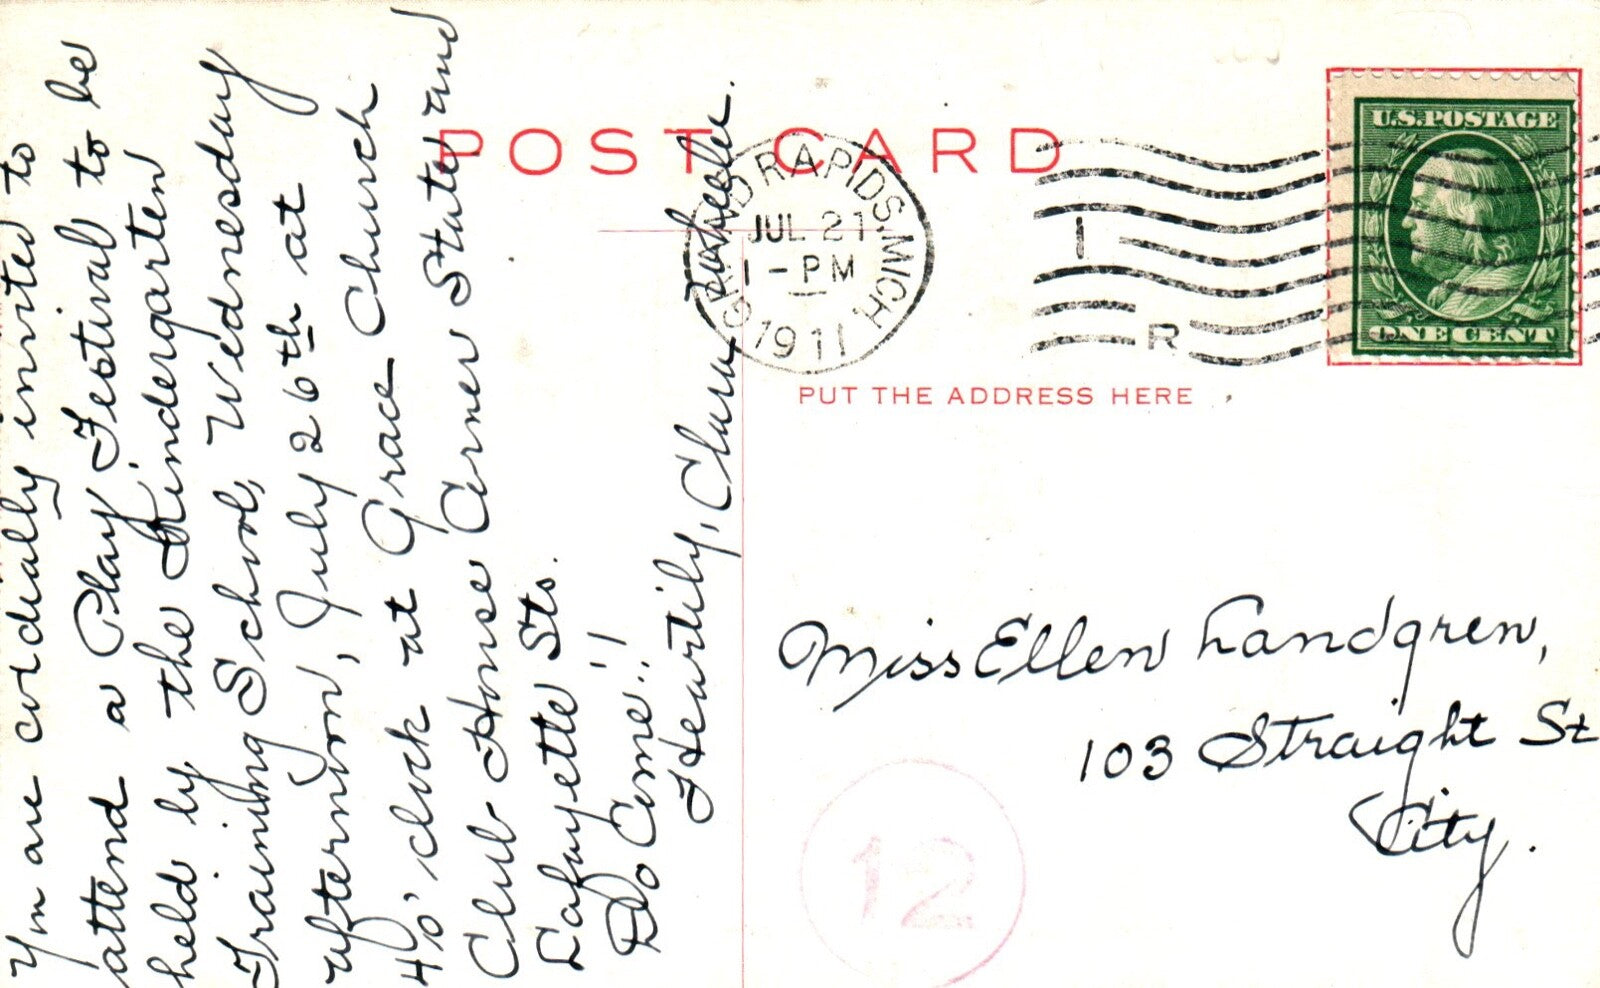 You are cordially invited to
attend a Play Festival to be
held by the Kindergarten
Training School, Wednesday
afternoon, July 26th at
4 o'clock at Grace Church
Club House Corner State and
Lafayette Sts.
Do Come!!
Heartily, Clara
POST CARD
GRAND RAPIDS, MICH
JUL 21
1-PM
1911
I
R
U.S. POSTAGE
ONE CENT
PUT THE ADDRESS HERE
Miss Ellen Landgren,
103 Straight St
City.
12